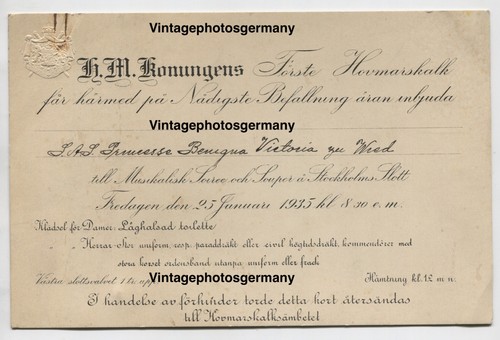 Vintagephotosgermany
H.M. Konungens Förste Hovmarskalk
får härmed på Nådigste Befallning äran inbjuda
Vintagephotosgermany
S.A.S. Princesse Benigna Victoria zu Wied
till Musikalisk Soirée och Souper å Stockholms Slott
Vintagephotosgermany
Fredagen den 25 Januari 1935 kl 8.30 e.m.
Klädsel för Damer: Låghalsad toilette
" " Herrar: Stor uniform, resp. paraddräkt eller civil högtidsdräkt, kommendörer med
stora korset ordensband utanpå uniform eller frack
Västra slottsvalvet 1 tr. upp
Vintagephotosgermany
Hämtning kl. 12 m.n.
I händelse av förhinder torde detta kort återsändas
till Hovmarskalksämbetet
Vintagephotosgermany